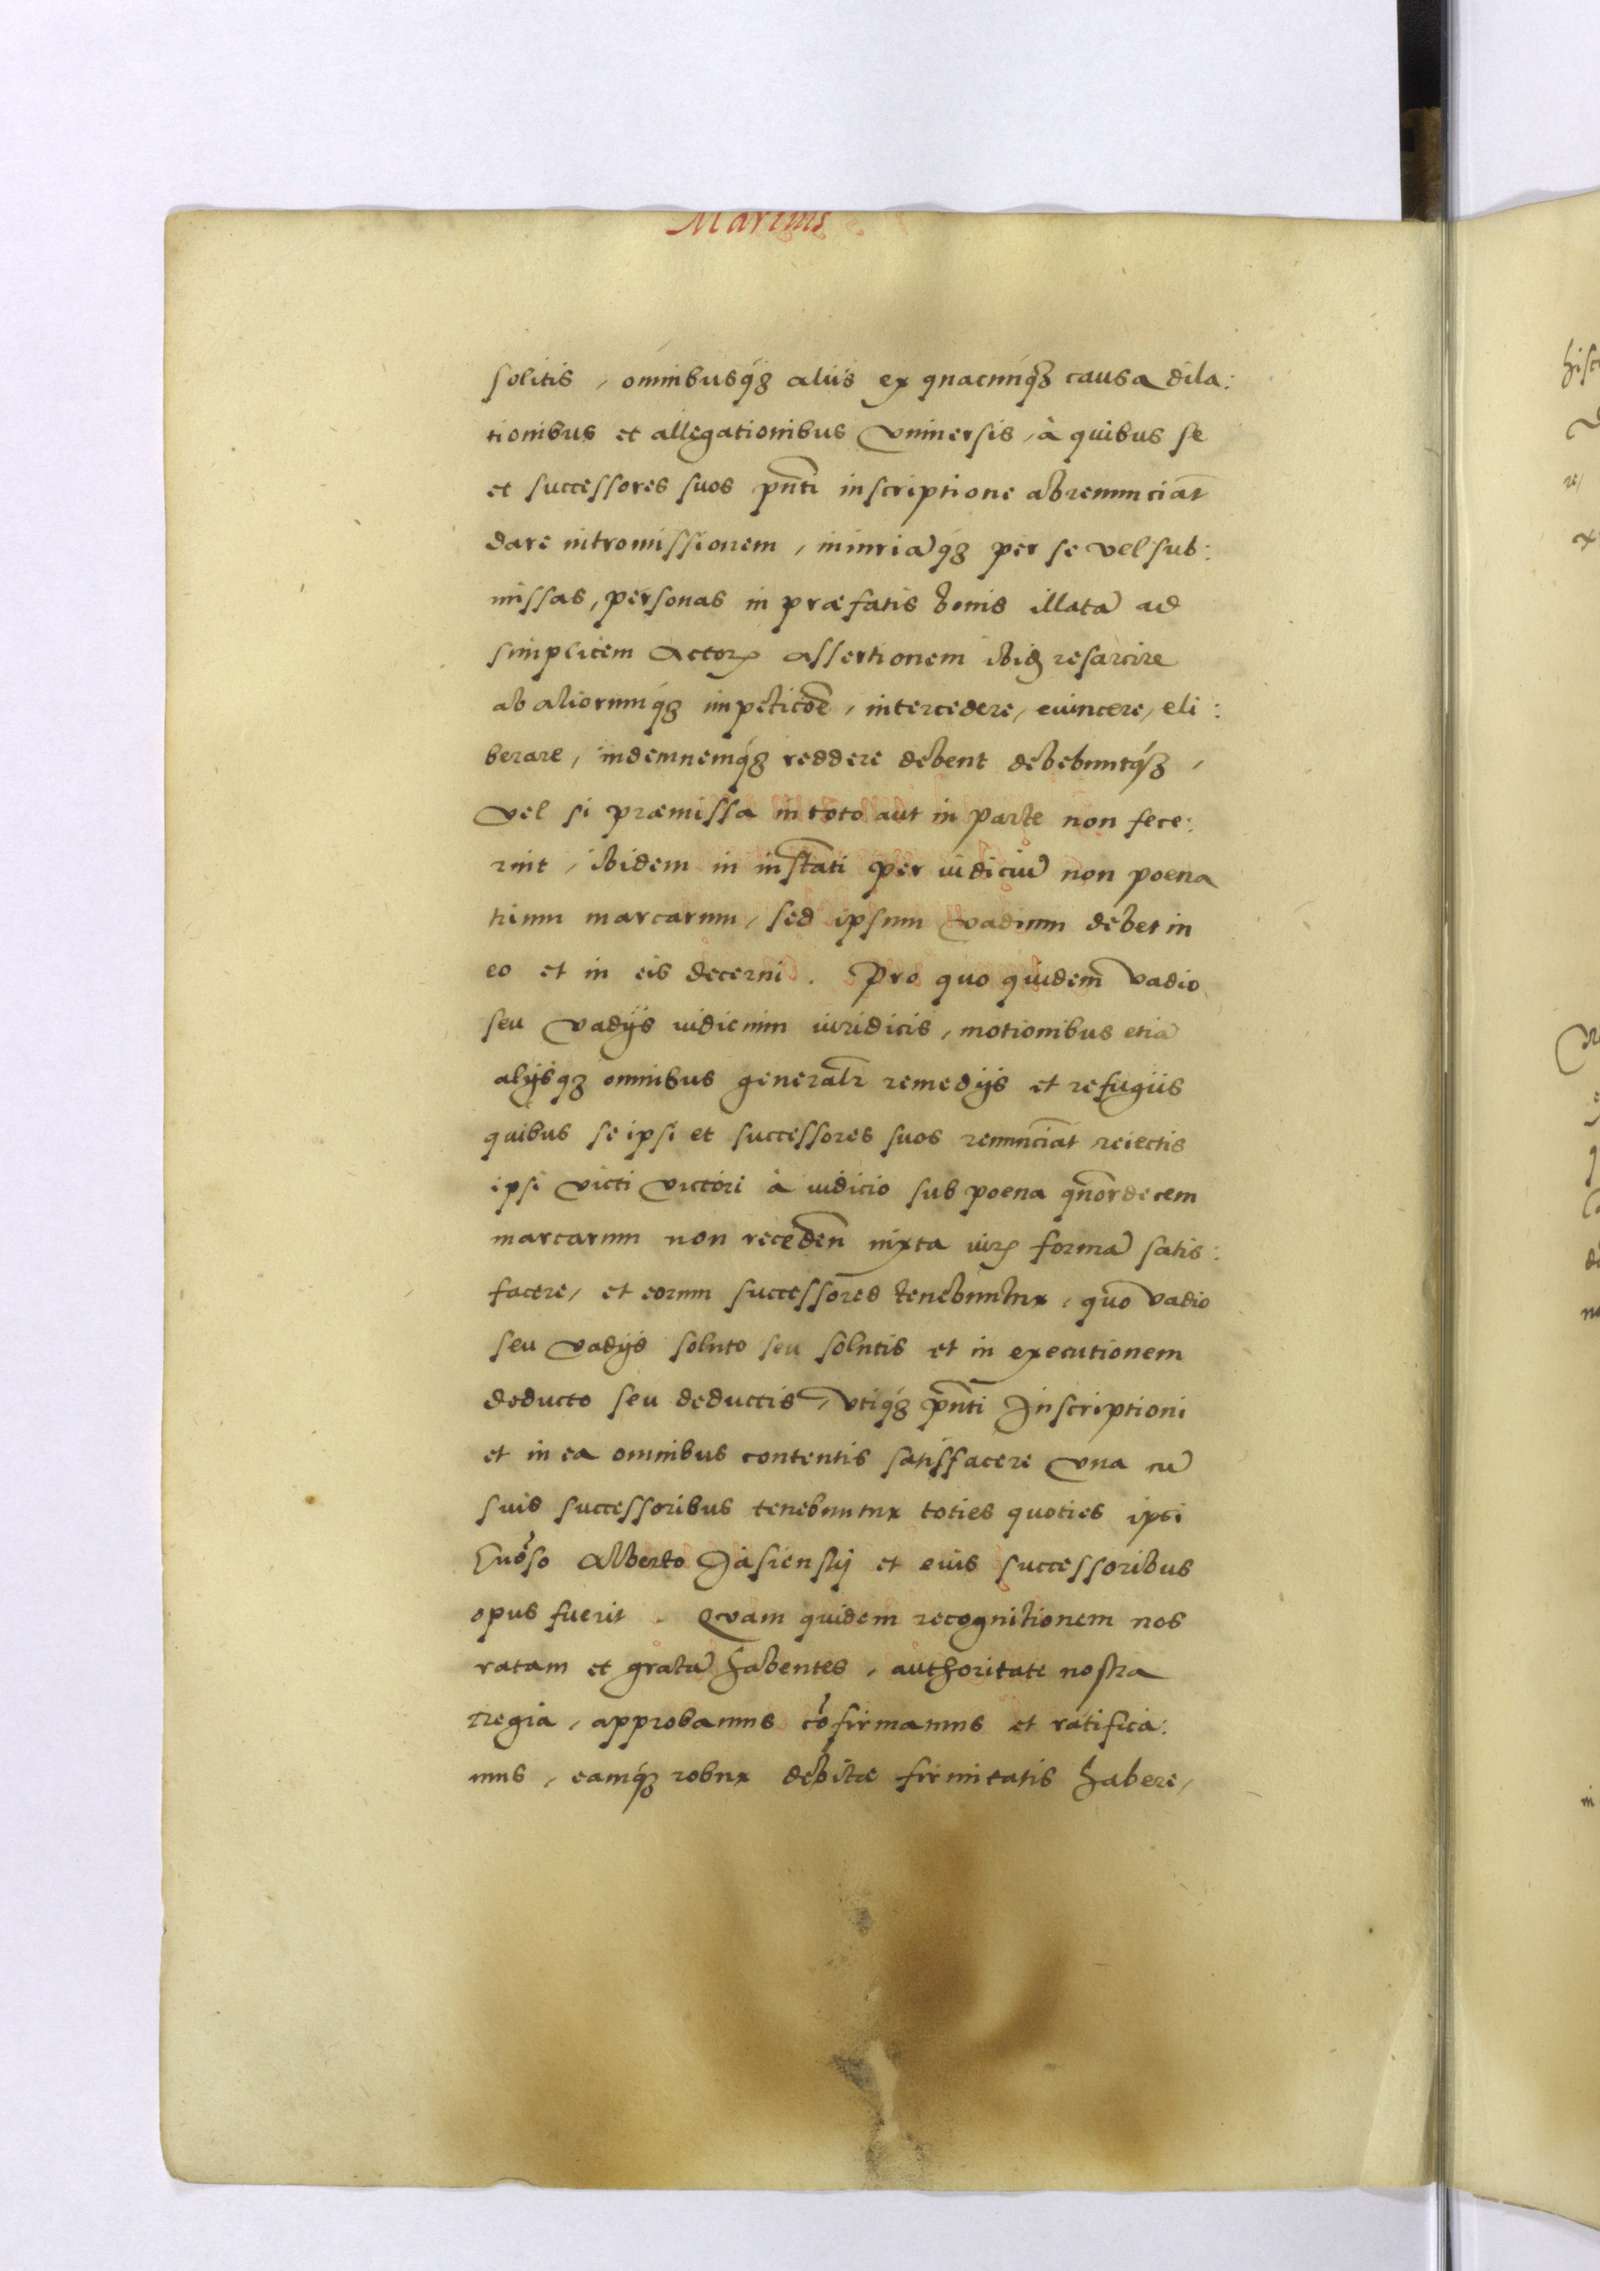 Martius
solitis, omnibusq́ꝫ aliis ex quacunq́ꝫ causa dila:
tionibus et allegationibus vniuersis, à quibus se
et successores suos pn̄ti inscriptione abrenunciāt
dare intromissionem, iniuriāq́ꝫ per se vel sub:
missas, personas in præfatis bonis illatā ad
simplicem Actorꝝ assertionem ibiꝫ resarcire
ab aliorumq́ꝫ impeticōē, intercedere, euincere, eli:
berare, indemnemq́ꝫ reddere debent debebuntq́ꝫ,
vel si præmissa in toto aut in parte non fece:
rint, ibidem in instāti per iudiciū non poena
trium marcarum, sed ipsum vadium debet in
eo et in eis decerni. Pro quo quidem vadio
seu vadijs iudicium iuridicis, motionibus etiā
alijsqꝫ omnibus generalr̄ remedijs et refugiis
quibus se ipsi et successores suos renunciāt reiectis
ipsi victi victori à iudicio sub poena qnōrdecem
marcarum non recedeñ iuxta iurꝝ formā satis:
facere, et eorum successores tenebuntur, quō vadio
seu vadijs soluto seu solutis et in executionem
deducto seu deductis, vtiq́ꝫ pn̄ti Inscriptioni
et in ea omnibus contentis satisfacere vna cū
suis successoribus tenebuntur toties quoties ipsi
Gnōso Alberto Jasienski et eius successoribus
opus fuerit. Quam quidem recognitionem nos
ratam et gratā habentes, authoritate nostra
regia, approbamus cōfirmamus et ratifica:
mus, eamq́ꝫ robur debitæ firmitatis habere,